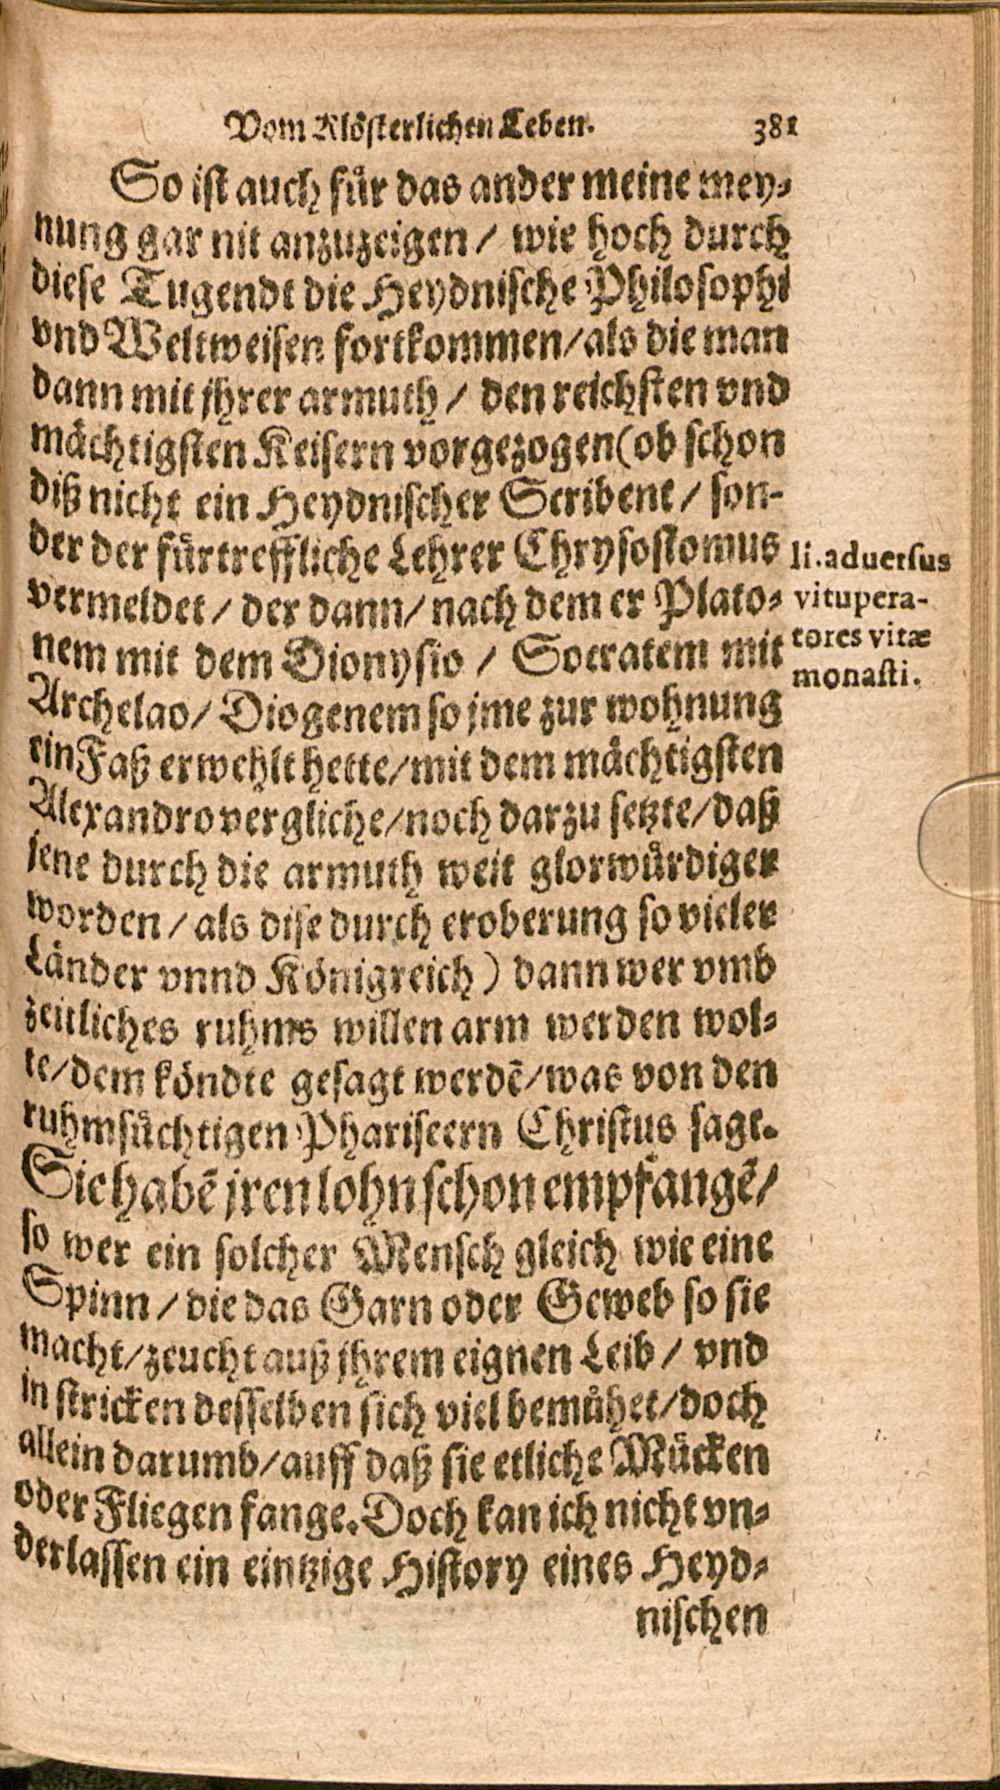 Vom Klösterlichen Leben. 381
So ist auch für das ander meine mey-
nung gar nit anzuzeigen / wie hoch durch
diese Tugendt die Heydnische Philosophi
vnd Weltweisen fortkommen/als die man
dann mit jhrer armuth / den reichsten vnd
mächtigsten Keisern vorgezogen (ob schon
diß nicht ein Heydnischer Scribent / son-
der der fürtreffliche Lehrer Chrysostomus
vermeldet / der dann / nach dem er Plato-
nem mit dem Dionysio / Socratem mit
Archelao / Diogenem so jme zur wohnung
ein Faß erwehlt hette/mit dem mächtigsten
Alexandro vergliche/noch darzu setzte/daß
jene durch die armuth weit glorwürdiger
worden / als dise durch eroberung so vieler
Länder vnnd Königreich) dann wer vmb
zeitliches ruhms willen arm werden wol-
te/dem köndte gesagt werdē/was von den
ruhmsüchtigen Phariseern Christus sagt.
Sie habē jren lohn schon empfangē/
so wer ein solcher Mensch gleich wie eine
Spinn / die das Garn oder Geweb so sie
macht/zeucht auß jhrem eignen Leib / vnd
in stricken desselben sich viel bemühet/doch
allein darumb/auff daß sie etliche Mücken
oder Fliegen fange. Doch kan ich nicht vn-
derlassen ein eintzige History eines Heyd-
nischen
li. aduersus
vitupera-
tores vitæ
monasti.